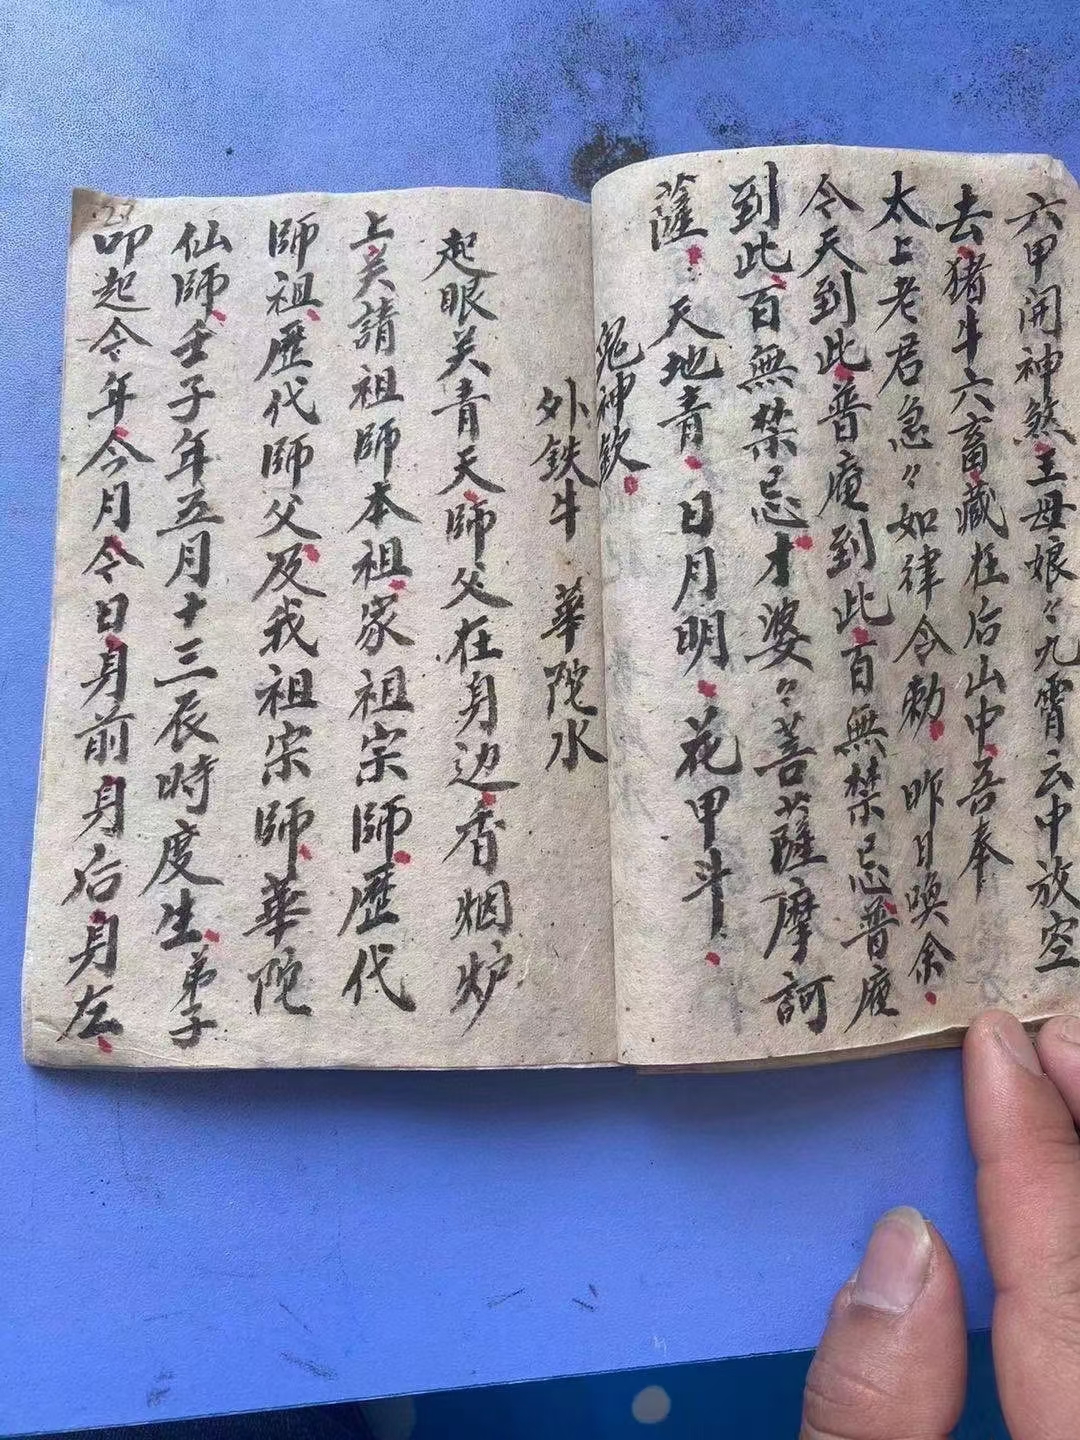 六甲開神煞王母娘々九霄云中放空
去猪牛六畜藏在后山中吾奉
太上老君急々如律令勅 昨日喚余
令天到此普庵到此百無禁忌普庵
到此百無禁忌才婆々菩薩摩訶
薩 天地青 日月明 花甲斗
鬼神欽
外鉄牛 華陀水
起眼关青天師父在身边香烟炉
上关請祖師本祖家祖宗師歷代
師祖歷代師父及我祖宗師華陀
仙師壬子年五月十三辰時度生弟子
叩起令年今月令日身前身后身左
27